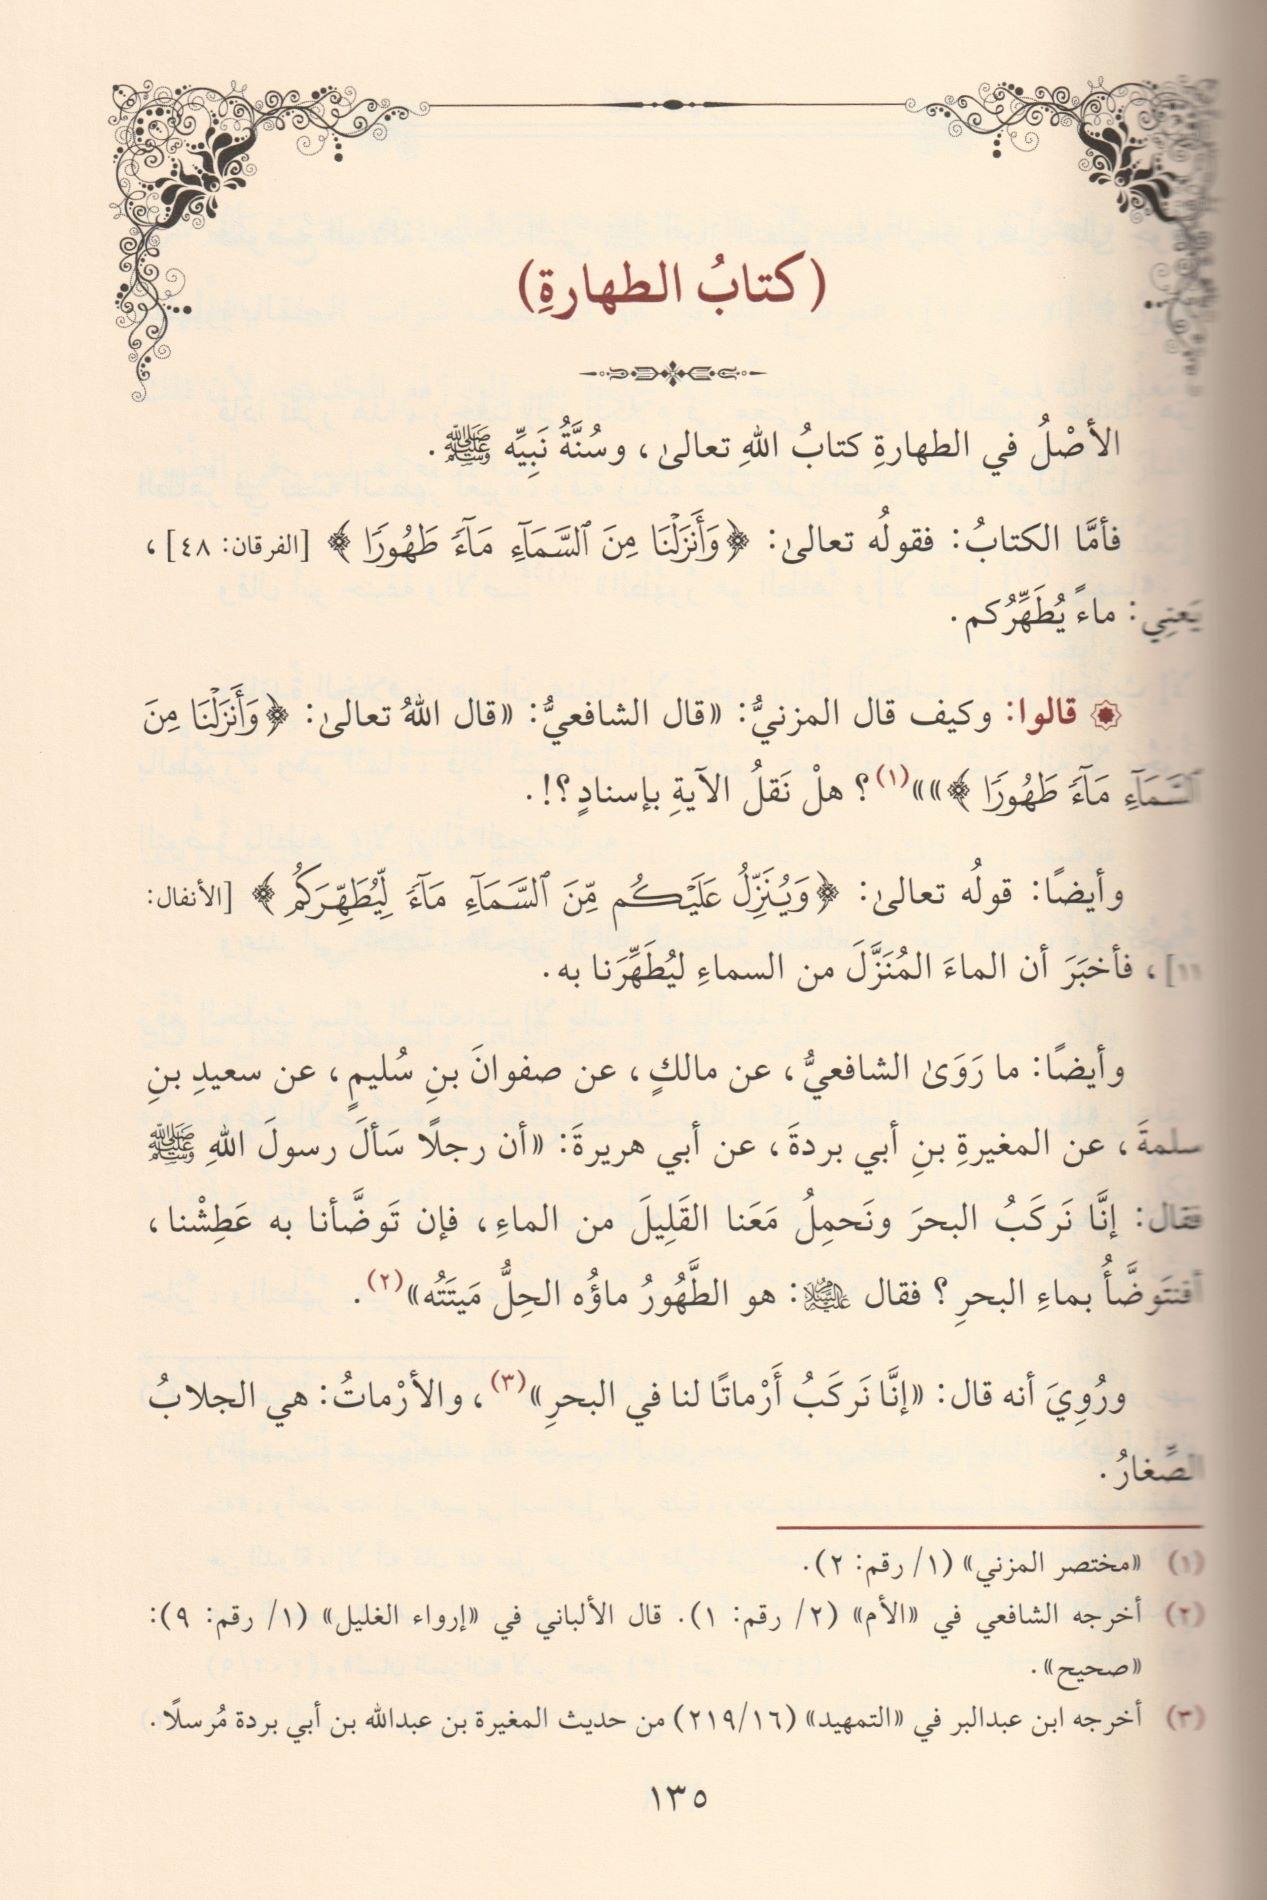 (كتابُ الطهارةِ)
الأصْلُ في الطهارةِ كتابُ اللهِ تعالىٰ، وسُنَّةُ نَبِيِّه ﷺ.
فأمَّا الكتابُ: فقولُه تعالىٰ: ﴿وَأَنزَلْنَا مِنَ ٱلسَّمَآءِ مَآءً طَهُورًا﴾ [الفرقان: ٤٨]،
يَعنِي: ماءً يُطَهِّرُكم.
قالوا: وكيف قال المزنيُّ: «قال الشافعيُّ: «قال اللهُ تعالىٰ: ﴿وَأَنزَلْنَا مِنَ
ٱلسَّمَآءِ مَآءً طَهُورًا﴾»»(١)؟ هلْ نَقلُ الآيةِ بإسنادٍ؟!.
وأيضًا: قولُه تعالىٰ: ﴿وَيُنَزِّلُ عَلَيْكُم مِّنَ ٱلسَّمَآءِ مَآءً لِّيُطَهِّرَكُم﴾ [الأنفال:
١١]، فأخبَرَ أن الماءَ المُنَزَّلَ من السماءِ ليُطَهِّرَنا به.
وأيضًا: ما رَوَىٰ الشافعيُّ، عن مالكٍ، عن صفوانَ بنِ سُليمٍ، عن سعيدِ بنِ
سلمةَ، عن المغيرةِ بنِ أبي بردةَ، عن أبي هريرةَ: «أن رجلًا سَألَ رسولَ اللهِ ﷺ
فقال: إنَّا نَركَبُ البحرَ ونَحمِلُ مَعَنا القَلِيلَ من الماءِ، فإن تَوضَّأنا به عَطِشْنا،
أفنتَوضَّأُ بماءِ البحرِ؟ فقال عليه السلام: هو الطَّهُورُ ماؤُه الحِلُّ مَيتَتُه»(٢).
ورُوِيَ أنه قال: «إنَّا نَركَبُ أَرْماتًا لنا في البحرِ»(٣)، والأرْماتُ: هي الجلابُ
الصِّغارُ.
(١) «مختصر المزني» (١/ رقم: ٢).
(٢) أخرجه الشافعي في «الأم» (٢/ رقم: ١). قال الألباني في «إرواء الغليل» (١/ رقم: ٩):
«صحيح».
(٣) أخرجه ابن عبدالبر في «التمهيد» (٢١٩/١٦) من حديث المغيرة بن عبدالله بن أبي بردة مُرسلًا.
١٣٥